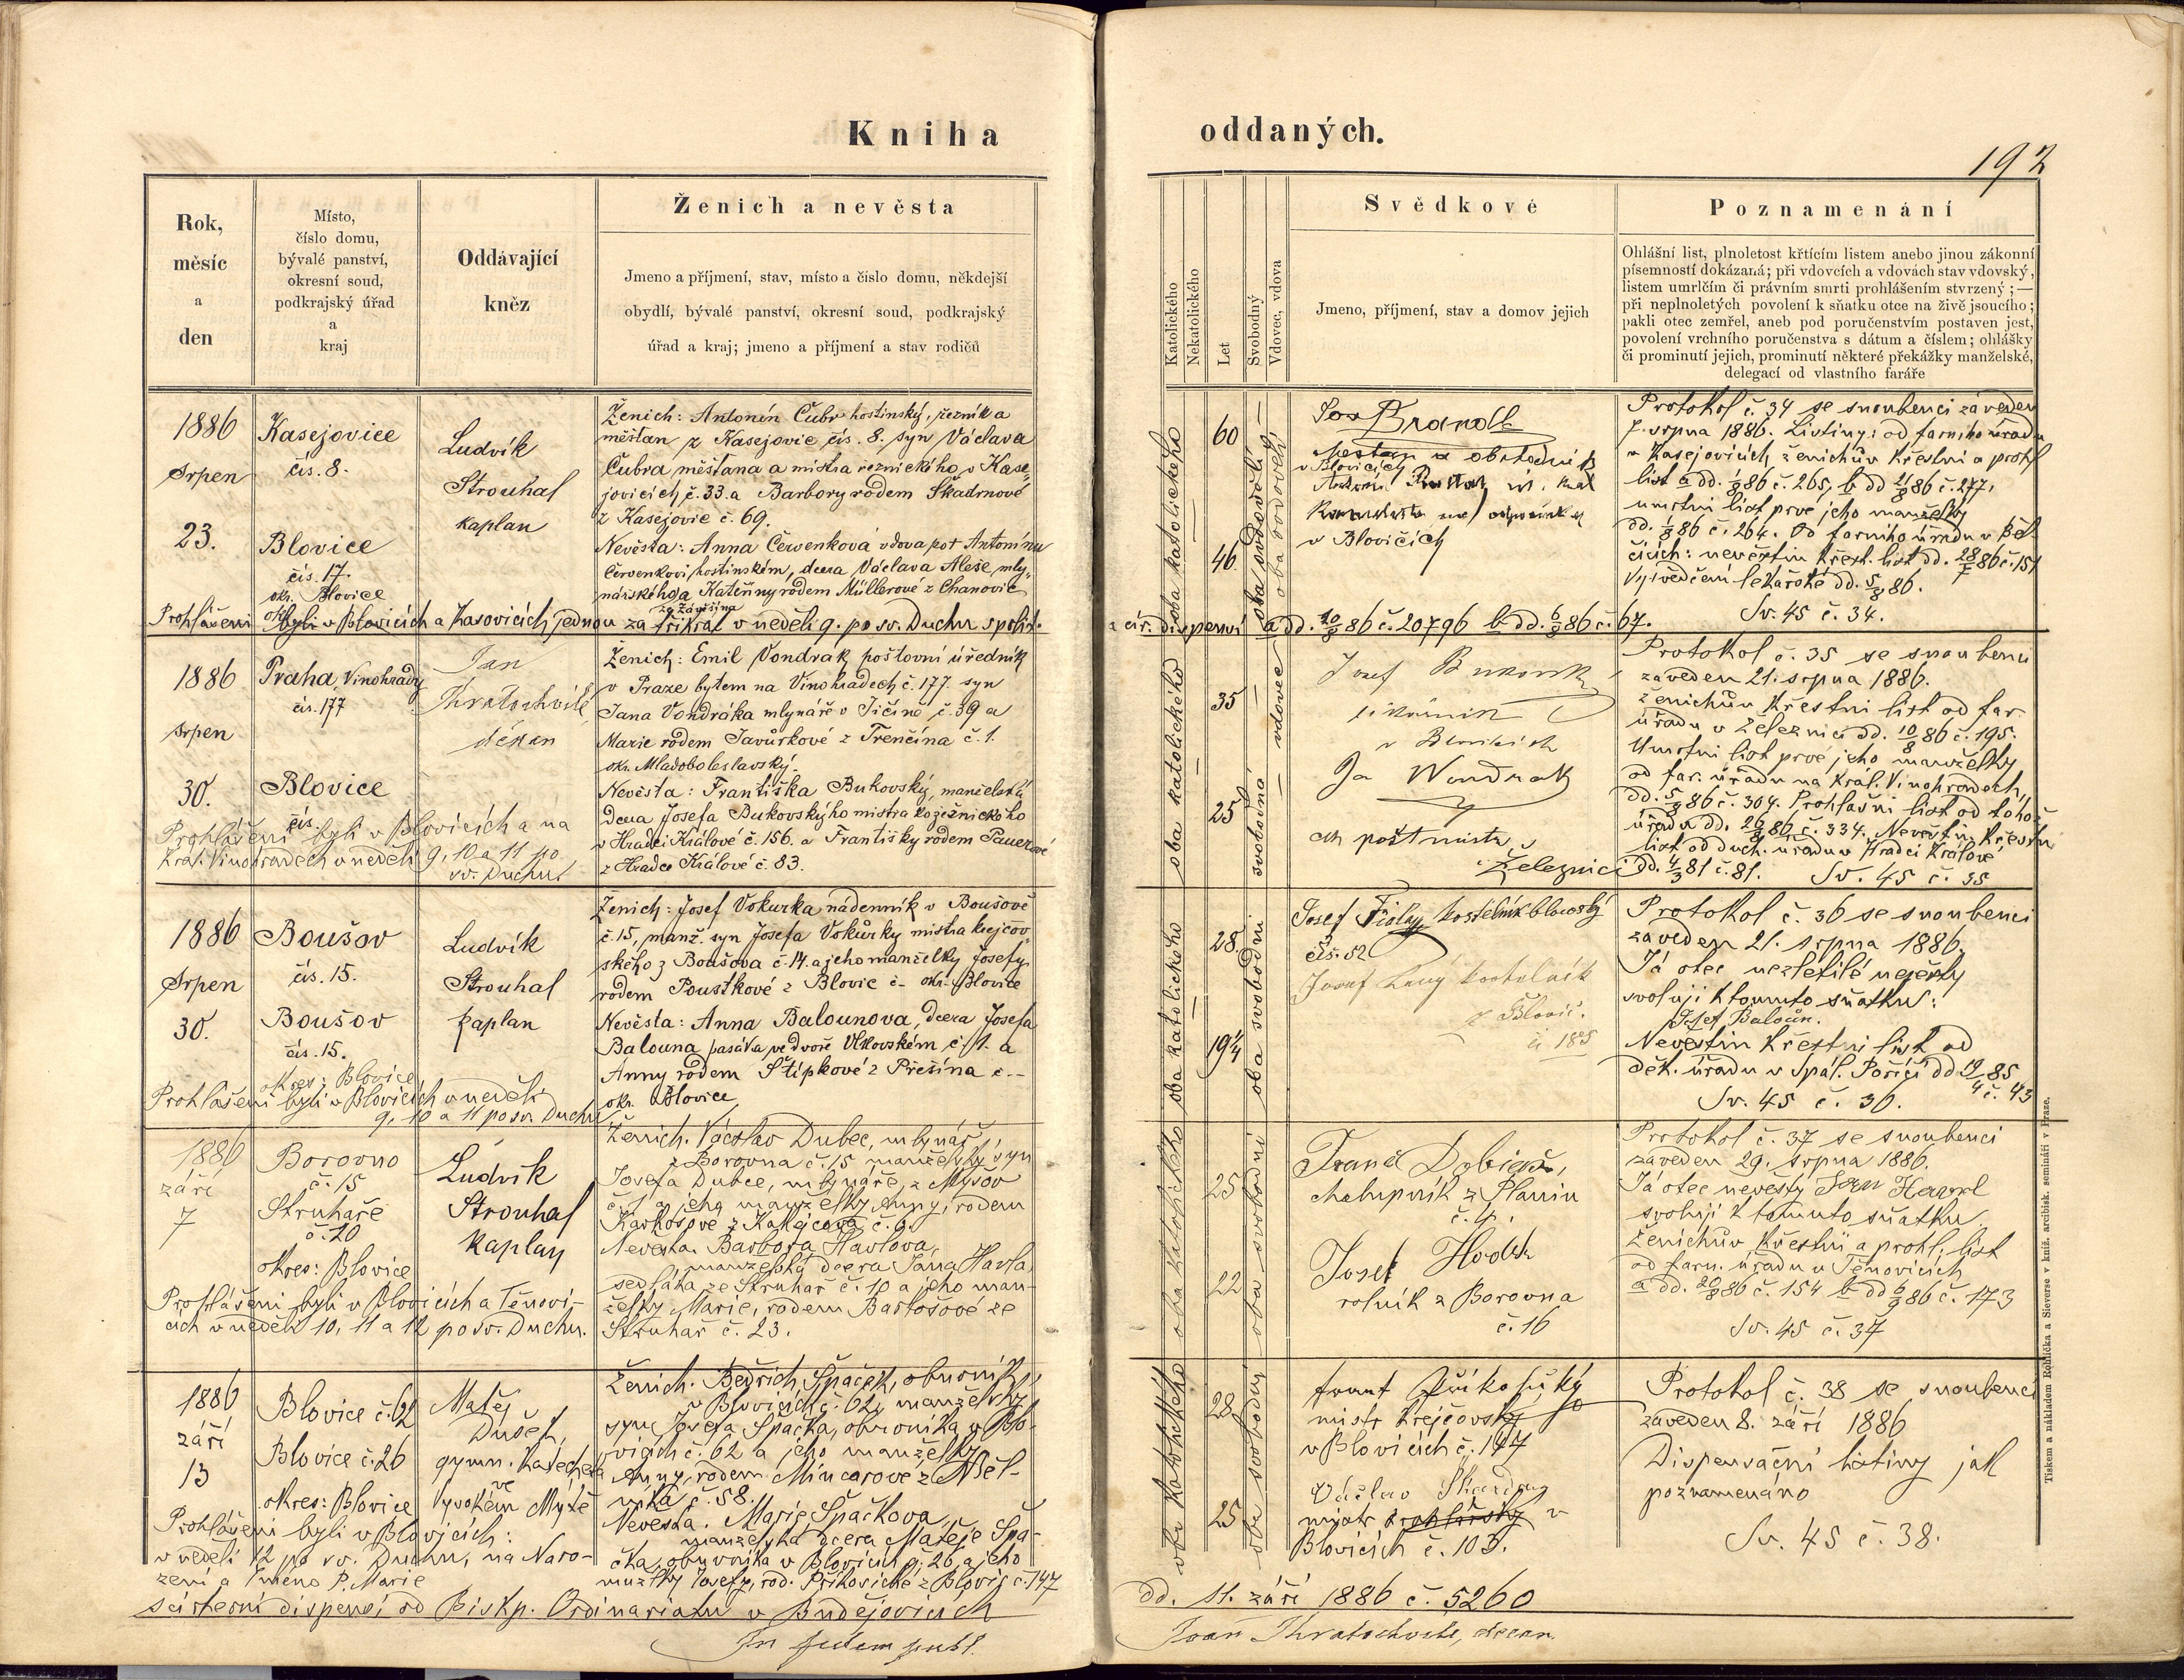 Kniha
oddaných.
192
Rok,
měsíc
a
den
Místo,
číslo domu,
bývalé panství,
okresní soud,
podkrajský úřad
a
kraj
Oddávající
kněz
Ženich a nevěsta
Jmeno a příjmení, stav, místo a číslo domu, někdejší
obydlí, bývalé panství, okresní soud, podkrajský
úřad a kraj; jmeno a příjmení a stav rodičů
Katolického
Nekatolického
Let
Svobodný
Vdovec, vdova
Svědkové
Jmeno, příjmení, stav a domov jejich
Poznamenání
Ohlášní list, plnoletost křtícím listem anebo jinou zákonní
písemností dokázaná; při vdovcích a vdovách stav vdovský,
listem umrlčím či právním smrti prohlášením stvrzený; —
při neplnoletých povolení k sňatku otce na živě jsoucího;
pakli otec zemřel, aneb pod poručenstvím postaven jest,
povolení vrchního poručenstva s dátum a číslem; ohlášky
či prominutí jejich, prominutí některé překážky manželské,
delegací od vlastního faráře
1886
Srpen
23.
Kasejovice
čís. 8.
Blovice
čís. 17.
okr. Blovice
Ludvík
Strouhal
kaplan
Ženich: Antonín Čubr hostinský, řezník a
měšťan z Kasejovic čís. 8. syn Václava
Čubra měšťana a mistra řeznického v Kase-
jovicích č. 33. a Barbory rodem Škadrnové
z Kasejovic č. 69.
Nevěsta: Anna Červenkova vdova po † Antonínu
Červenkovi, hostinském, dcera Václava Aleše, mly-
nářského a Kateřiny rodem Müllerové z Chanovic
Prohlášeni byli v Blovicích a Kasovicích jednou za třikrát v neděli 9. po sv. Duchu s polit.
a cír. dispensí a dd. 10/8 86 č. 20796 b dd. 6/8 86 č. 67.
oba katolického
60
46
oba vdoveli
Jos Brandl
v Blovicích
v Blovicích
Protokol č. 34 se snoubenci zaveden
7. srpna 1886. Listiny: od farního úřadu
v Kasejovicích ženichův křestní a prohl
list a dd. 1/8 86 č. 265, b dd 21/8 86 č. 277,
umrtní list prvé jeho manželky
dd. 1/8 86 č. 264. Od farního úřadu v Běl-
čicích: nevěstin křest. list dd. 28/7 86 č. 151
Vysvědčení lekařské dd. 5/8 86.
Sv. 45 č. 34.
1886
srpen
30.
Praha, Vinohrady
čís. 177
Blovice
čís.
Jan
Kratochvíle
děkan
Ženich: Emil Vondrák poštovní úředník
v Praze bytem na Vinohradech č. 177. syn
Jana Vondráka mlynáře v Jičíně č. 39 a
Marie rodem Javůrkové z Trenčína č. 1.
okr. Mladoboleslavský.
Nevěsta: Františka Bukovský, manželská
dcera Josefa Bukovského mistra kožešnického
v Hradci Králové č. 156. a Františky rodem Pauerové
z Hradce Králové č. 83.
Prohlášeni byli v Blovicích a na
Král. Vinohradech v neděli 9, 10 a 11 po
sv. Duchu
oba katolického
35
25
vdovec
svobodná
Josef Bukovský
v Blovicích
Ja Wondrak
poštmistr v
Železnici
Protokol č. 35 se snoubenci
zaveden 21. srpna 1886.
Ženichův křestní list od far.
úřadu v Železnici dd. 10/8 86 č. 195.
Umrtní list prvé jeho manželky
od far. úřadu na Král. Vinohradech,
dd. 5/8 86 č. 304. Prohlašní list od tohož
úřadu dd. 26/8 86 č. 334. Nevěstin křestní
list od duch. úřadu v Hradci Králové
dd. 4/3 81 č. 81. Sv. 45 č. 35
1886
Srpen
30.
Boušov
čís. 15.
Boušov
čís. 15.
okres: Blovice
Ludvík
Strouhal
kaplan
Ženich: Josef Vokurka nádenník v Boušově
č. 15, manž. syn Josefa Vokurky mistra krejčov-
ského z Boušova č. 14. a jeho manželky Josefy
rodem Poustkové z Blovic č – okr. Blovice
Nevěsta: Anna Balounova, dcera Josefa
Balouna pasáka ve dvoře Vlkovském č. 1. a
Anny rodem Štípkové z Přešína č. –
okr. Blovice
Prohlášeni byli v Blovicích v neděli
9, 10 a 11 po sv. Duchu
oba katolického
28
19¼
oba svobodni
Josef Fiala, kostelník blovský
čís. 52
Josef kostelník
z Blovic.
č 185
Protokol č. 36 se snoubenci
zaveden 21. srpna 1886.
Já otec nezletilé nevěsty
svoluji k tomuto sňatku:
Josef Baloun.
Nevěstin křestní list od
děk. úřadu v Spál. Poříčí dd 19/4 85
č. 43
Sv. 45 č. 36.
1886
září
7
Borovno
č. 15
Struhaře
č. 10
okres: Blovice
Ludvík
Strouhal
kaplan
Ženich. Václav Dubec, mlynář
z Borovna č. 15 manželský syn
Josefa Dubce, mlynáře z Myšov
č. 1 a jeho manželky Anny, rodem
Karkošové z Kakejcova č. 9.
Nevěsta. Barbora Havlova,
manželská dcera Jana Havla,
sedláka ze Struhař č. 10 a jeho man-
želky Marie, rodem Bartošové ze
Struhař č. 23.
Prohlášeni byli v Blovicích a Těnovi-
cích v neděli 10, 11 a 12 po sv. Duchu.
oba katolického
25
22
oba svobodní
Franc Dobiáš,
chalupník z Planin
č. 4.
Josef Hodek
rolník z Borovna
č. 16
Protokol č. 37 se snoubenci
zaveden 29. srpna 1886.
Já otec nevěsty Jan Havel
svoluji k tomuto sňatku
Ženichův křestní a prohl. list
od farn. úřadu v Těnovicích
a dd. 20/8 86 č. 154 b dd 6/9 86 č. 173
Sv. 45 č. 37
1886
září
13
Blovice č. 62
Blovice č. 26
okres: Blovice
Matěj
Dušek,
gymn. katecheta
ve
Vysokém Mýtě
Ženich. Bedřich Špaček, obuvník
v Blovicích č. 62, manželský
syn Josefa Špačka, obuvníka v Blo-
vicích č. 62 a jeho manželky
Anny, rodem Mincarové z Měl-
níka č. 58.
Nevěsta. Marie Špačkova,
manželská dcera Matěje Špa-
čka, obuvníka v Blovicích č. 26, a jeho
mažlky Josefy, rod. Příkosické z Blovic č. 147
Prohlášeni byli v Blovicích:
v neděli 12 po sv. Duchu, na Naro-
zení a Jméno P. Marie
s církevní dispensí od Biskp. Ordinariatu v Budějovicích
dd. 11. září 1886 č. 5260
oba katolického
28
25
oba svobodní
mistr krejčovský
v Blovicích č. 147
Václav
mistr v
Blovicích č. 103.
Protokol č. 38 se snoubenci
zaveden 8. září 1886
Dispensační listiny jak
poznamenáno
Sv. 45 č. 38.
In fidem publ.
Joan Kratochvíle, decan.
Tiskem a nákladem Rohlíčka a Sieverse v kníž. arcibisk. semináři v Praze.